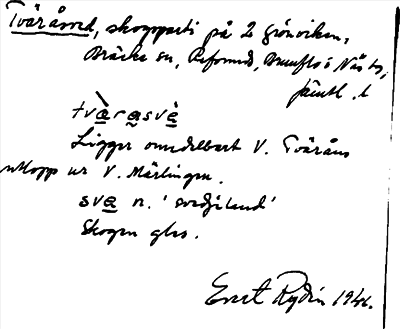 Tväråsved, skogsparti på 2 Grönviken,
Bräcke sn, Refsund, Brunflo o Näs ts,
Jämtl. l
tvàrasvè
Ligger omedelbart V. Tväråns
utlopp ur V. Märlingen.
sve n. 'svedjeland'
Skogen gles.
Ernst Rydin 1946.